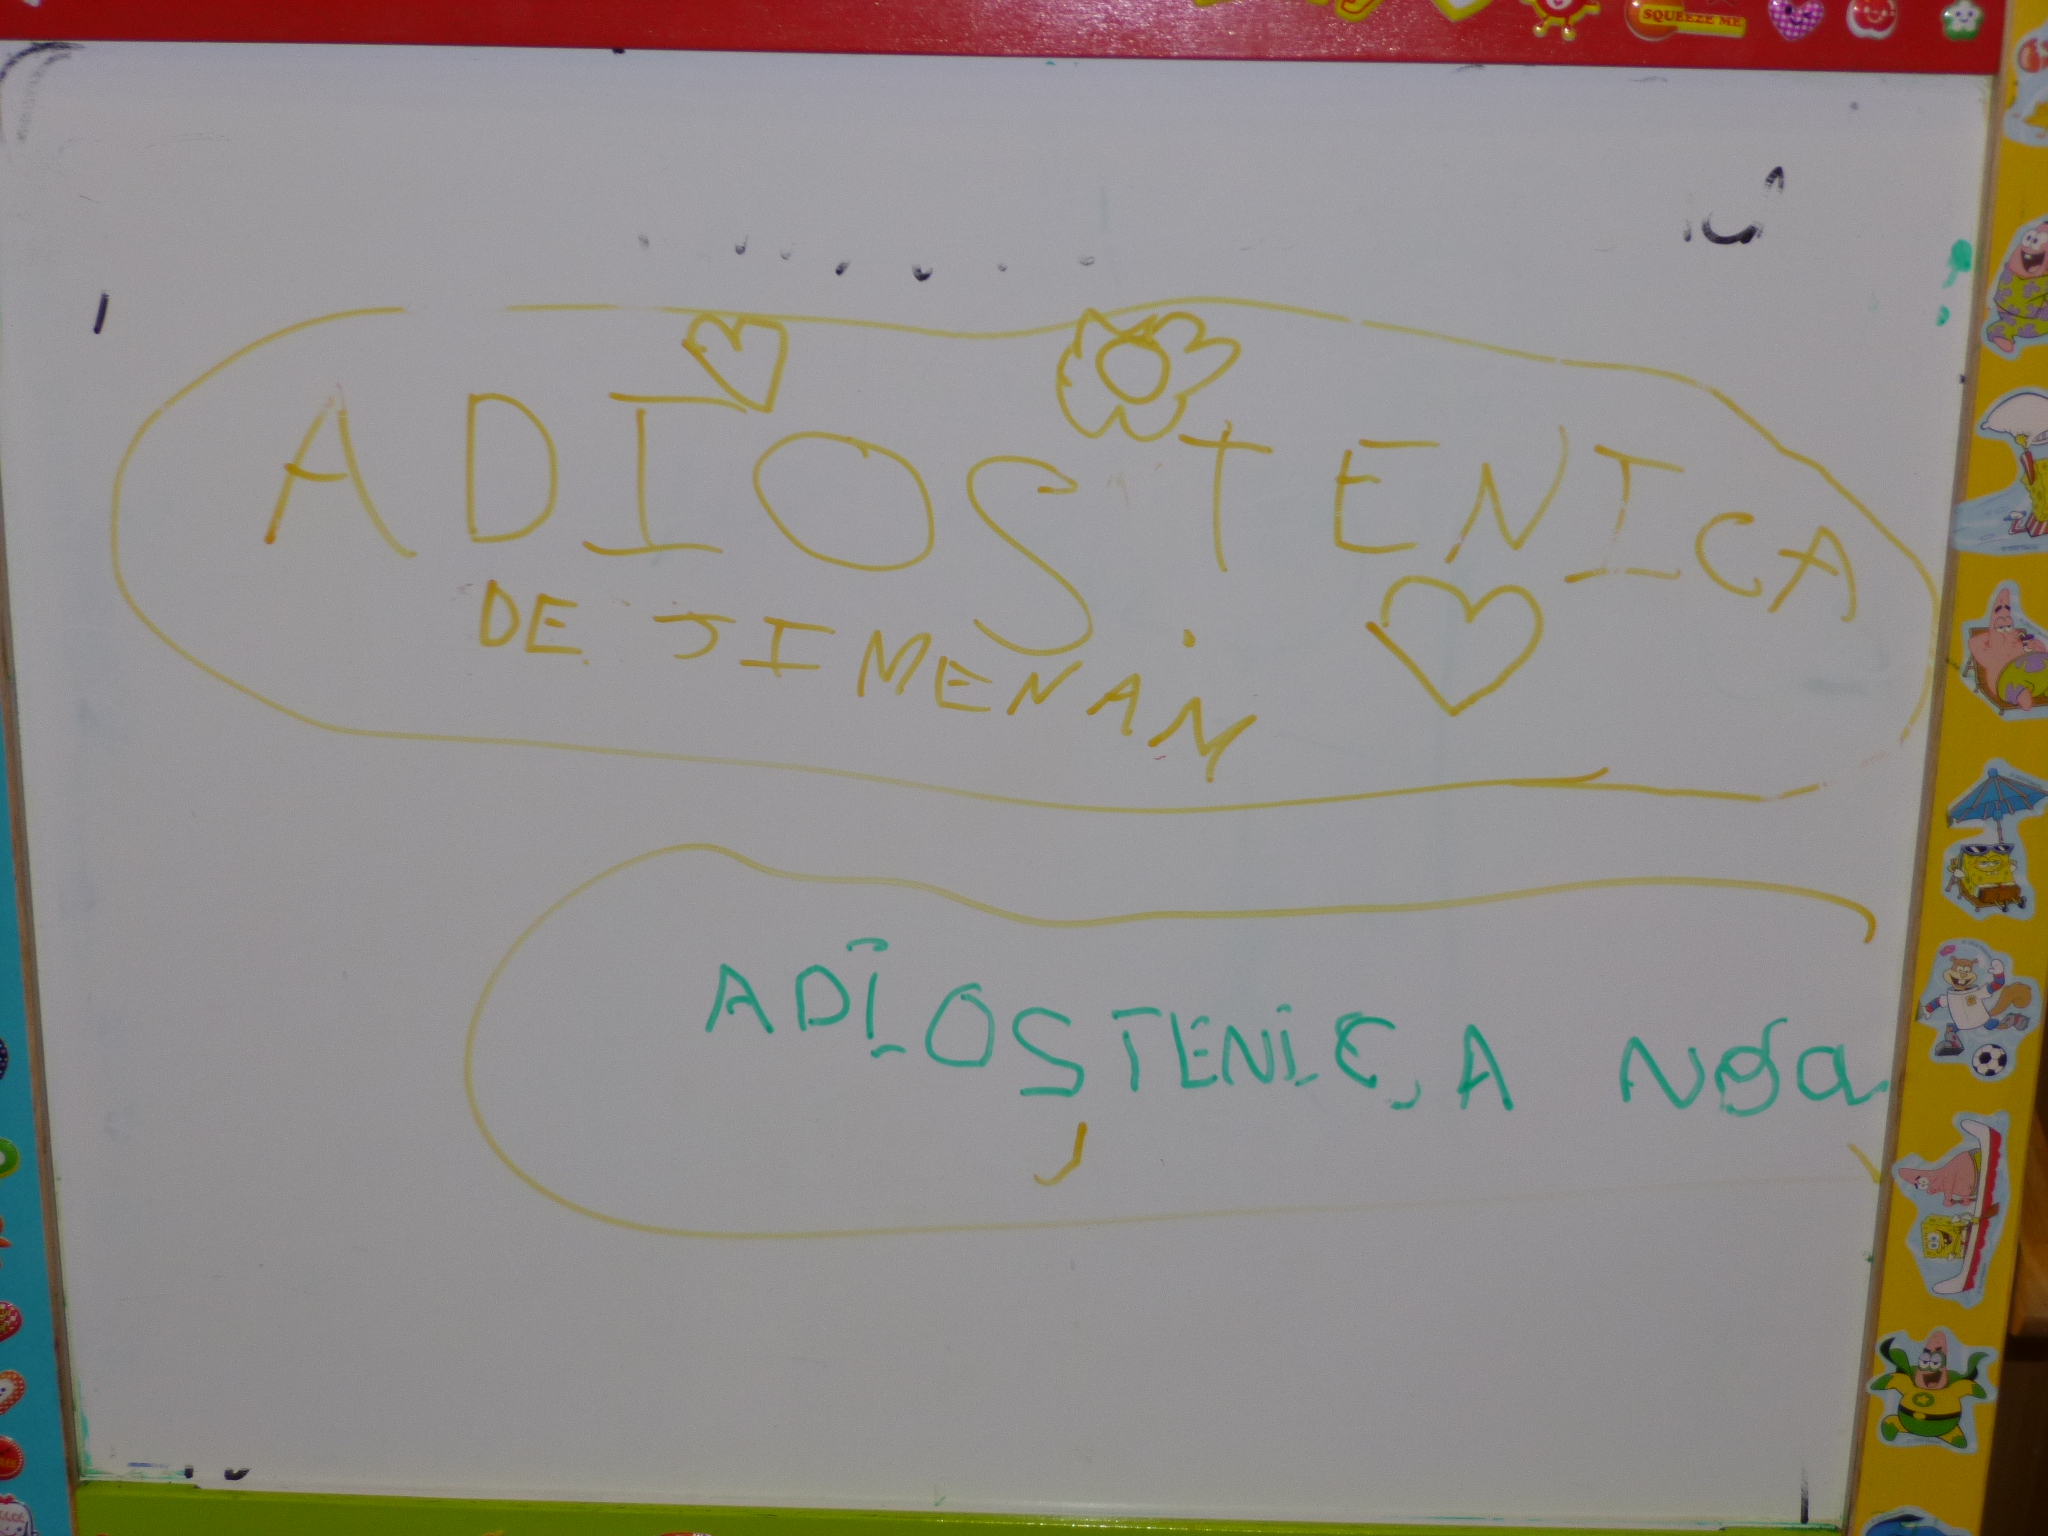 SQUEEZE ME
ADIOS TENICA
DE JIMENA M
ADIOS TENICA